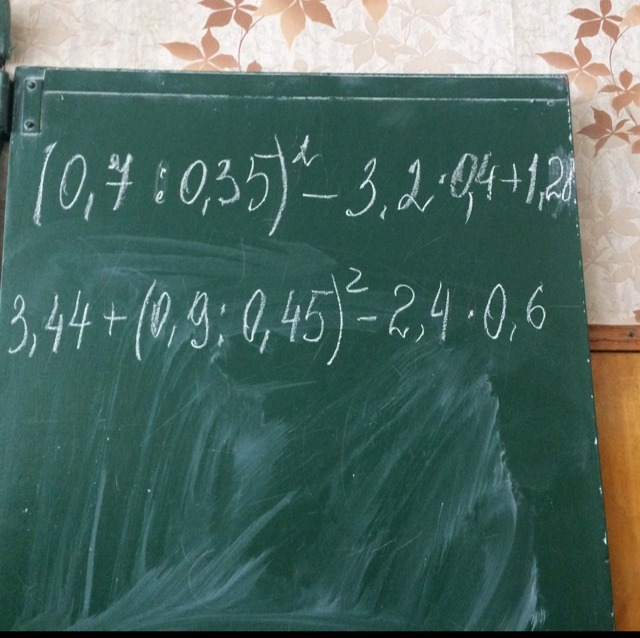 (0,7 : 0,35)² - 3,2 · 0,4 + 1,28
3,44 + (0,9 : 0,45)² - 2,4 · 0,6